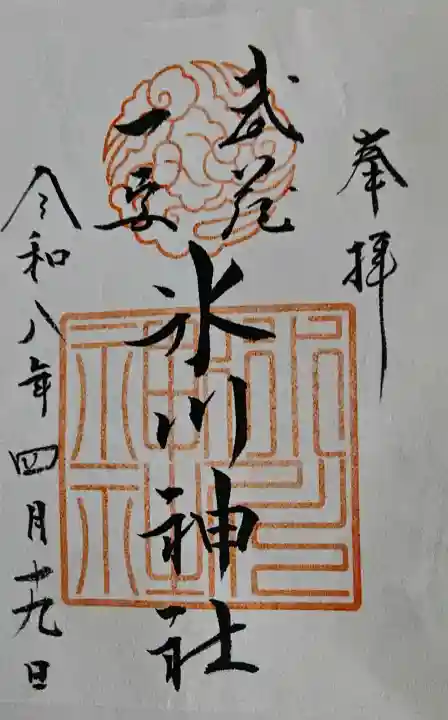 奉拝
武蔵
一宮
氷川神社
令和八年四月十九日
氷川神社